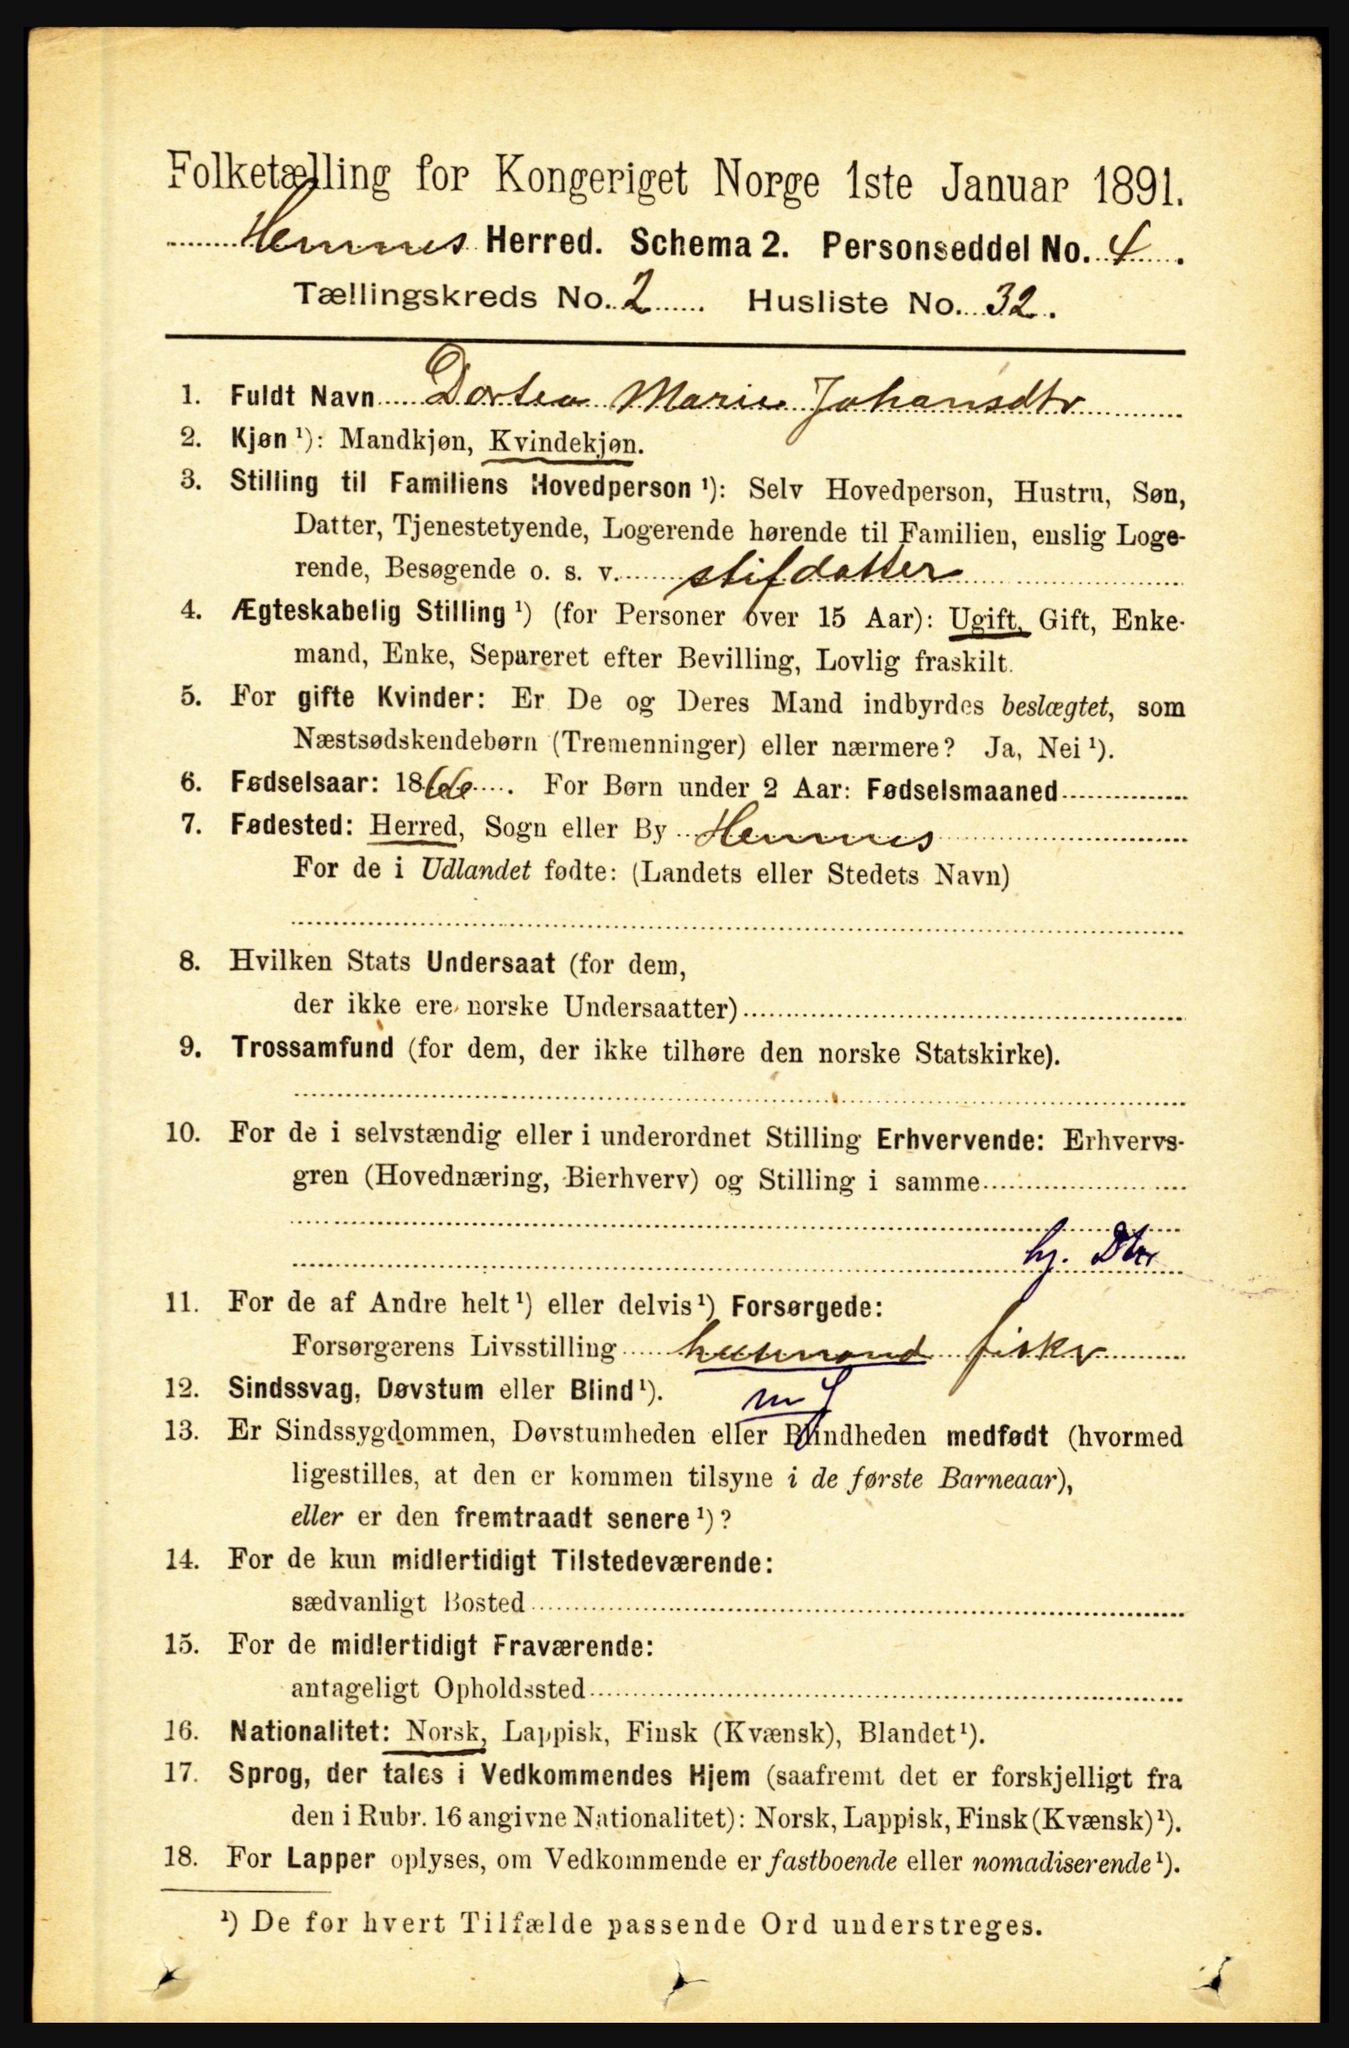 Folketælling for Kongeriget Norge 1ste Januar 1891.
Hemnes Herred. Schema 2. Personseddel No. 4.
Tællingskreds No. 2. Husliste No. 32.
1. Fuldt Navn Dortea Marie Johansdtr
2. Kjøn ¹): Mandkjøn, Kvindekjøn.
3. Stilling til Familiens Hovedperson ¹): Selv Hovedperson, Hustru, Søn,
Datter, Tjenestetyende, Logerende hørende til Familien, enslig Loge-
rende, Besøgende o. s. v. stifdatter
4. Ægteskabelig Stilling ¹) (for Personer over 15 Aar): Ugift, Gift, Enke-
mand, Enke, Separeret efter Bevilling, Lovlig fraskilt.
5. For gifte Kvinder: Er De og Deres Mand indbyrdes beslægtet, som
Næstsødskendebørn (Tremenninger) eller nærmere? Ja, Nei ¹).
6. Fødselsaar: 1866. For Børn under 2 Aar: Fødselsmaaned
7. Fødested: Herred, Sogn eller By Hemnes
For de i Udlandet fødte: (Landets eller Stedets Navn)
8. Hvilken Stats Undersaat (for dem,
der ikke ere norske Undersaatter)
9. Trossamfund (for dem, der ikke tilhøre den norske Statskirke).
10. For de i selvstændig eller i underordnet Stilling Erhvervende: Erhvervs-
gren (Hovednæring, Bierhverv) og Stilling i samme
hj. Dtr
11. For de af Andre helt ¹) eller delvis ¹) Forsørgede:
Forsørgerens Livsstilling husmand fisker
12. Sindssvag, Døvstum eller Blind ¹). m J
13. Er Sindssygdommen, Døvstumheden eller Blindheden medfødt (hvormed
ligestilles, at den er kommen tilsyne i de første Barneaar),
eller er den fremtraadt senere ¹)?
14. For de kun midlertidigt Tilstedeværende:
sædvanligt Bosted
15. For de midlertidigt Fraværende:
antageligt Opholdssted
16. Nationalitet: Norsk, Lappisk, Finsk (Kvænsk), Blandet ¹).
17. Sprog, der tales i Vedkommendes Hjem (saafremt det er forskjelligt fra
den i Rubr. 16 angivne Nationalitet): Norsk, Lappisk, Finsk (Kvænsk) ¹).
18. For Lapper oplyses, om Vedkommende er fastboende eller nomadiserende ¹).
¹) De for hvert Tilfælde passende Ord understreges.